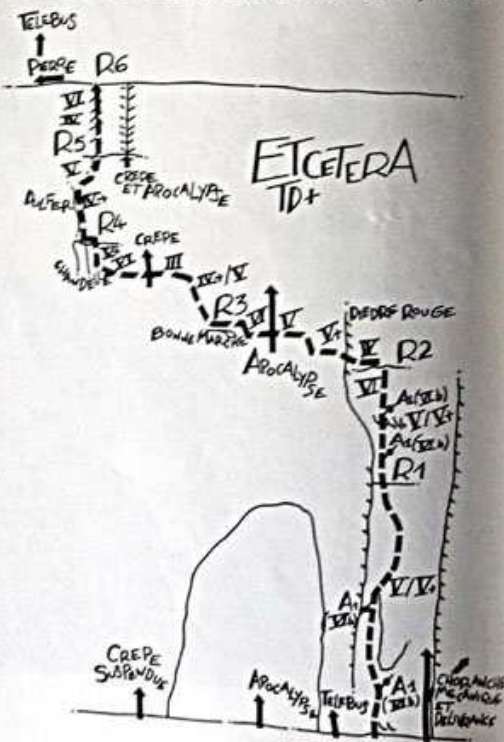 TELEBUS
PIERRE
R6
VI
IV
R5
V
CREPE
ET APOCALYPSE
ETCETERA
TD+
IV+
R4
CREPE
V+
VI
III
IV+/V
R3
BONNE MARCHE
VI
V
V+
APOCALYPSE
DIEDRE ROUGE
IV
R2
VI
A1(VIb)
V/V+
A1(VIb)
R1
V/V+
A1
(VIb)
CREPE
SUSPENDUE
APOCALYPSE
TELEBUS
A1
(VIb)
CHORANCHE
MECANIQUE
ET
DELIVRANCE